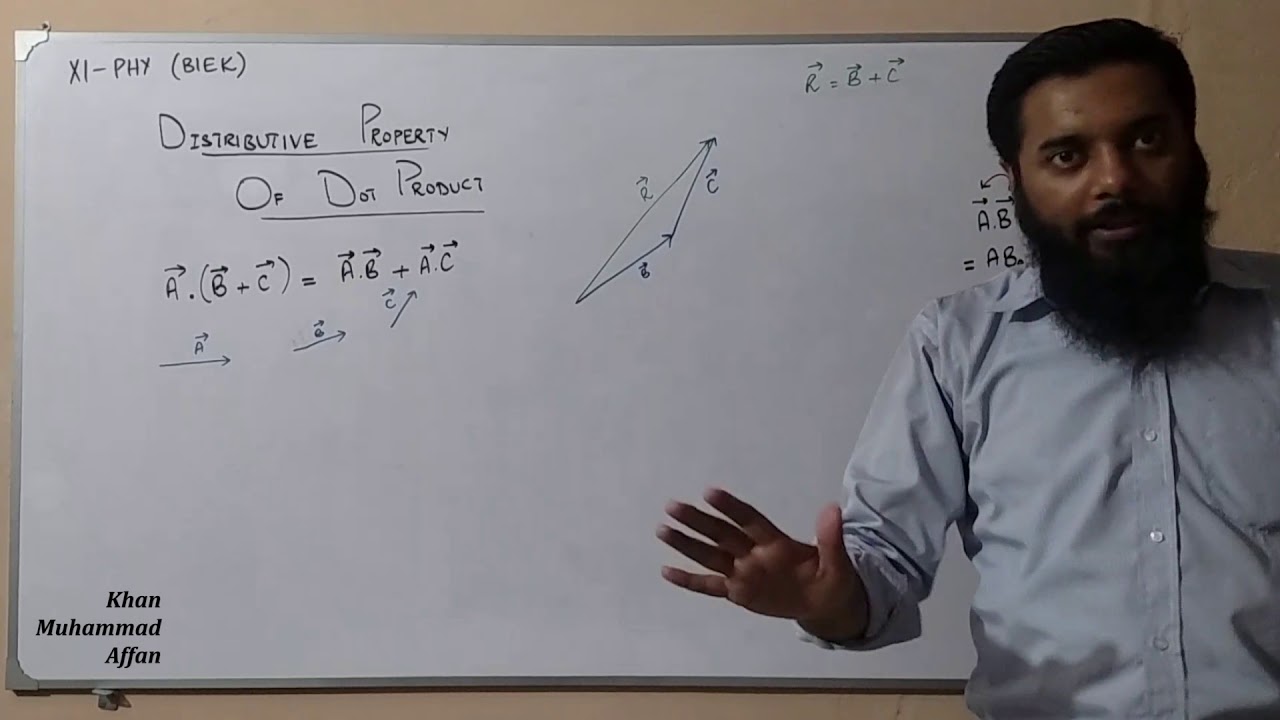 XI-PHY (BIEK)
DISTRIBUTIVE PROPERTY
OF DOT PRODUCT
A⃗.(B⃗+C⃗) = A⃗.B⃗ + A⃗.C⃗
A⃗
B⃗
C⃗
R⃗
B⃗
C⃗
R⃗ = B⃗ + C⃗
A⃗.B⃗
= AB
Khan
Muhammad
Affan